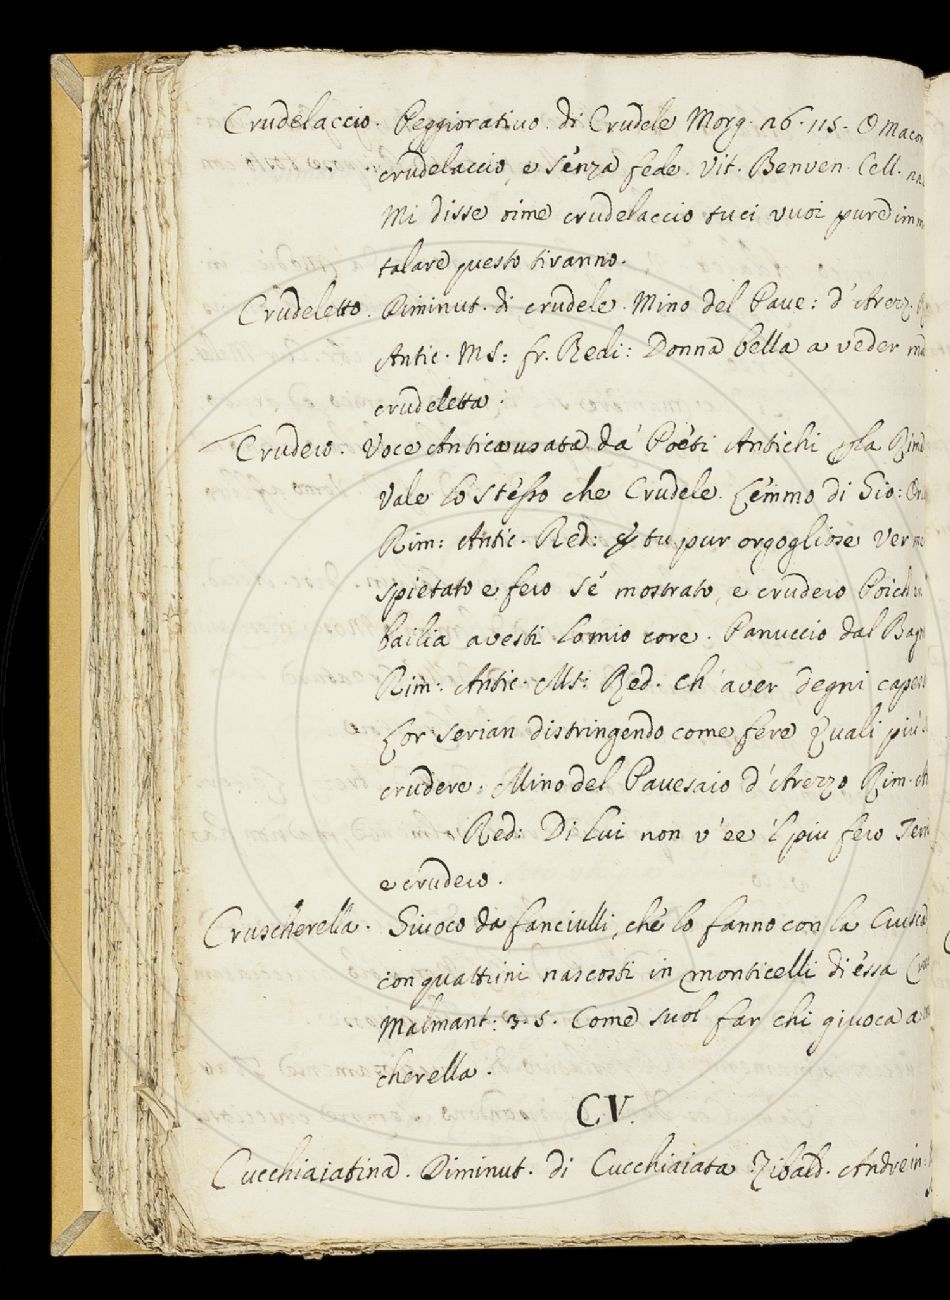 Crudelaccio. Peggiorativo di Crudele Morg. 26. 115. O Macon
crudelaccio, e senza fede. Vit. Benven. Cell.
Mi disse oime crudelaccio tu ci vuoi pure im
talare questo tiranno.
Crudeletto. Diminut. di crudele. Mino del Pave: d'Arezz.
Antic. MS: fr. Redi: Donna bella a veder ma
crudeletta.
Crudero. Voce Antica usata da' Poeti Antichi p la Rim
Vale lo stesso che Crudele. Lemmo di Gio:
Rim: Antic. Red: E tu pur orgogliose ver me
spietato e fero se' mostrato, e crudero Poich
bailia avesti lo mio core. Panuccio dal Bagn
Rim: Antic. Ms: Red. Ch' aver degni caper
Lor serian distringendo come fere Quali più
crudere. Mino del Pavesaio d'Arezzo Rim. A
Red: Di lui non v'ee 'l piu fero
e crudero.
Cruscherella. Giuoco da fanciulli, che lo fanno con la Crusca
con quattrini nascosti in monticelli di essa
Malmant: 3. 5. Come suol far chi giuoca a
cherella.
CV.
Cucchiaiatina. Diminut. di Cucchiaiata Zibald. Andrein: